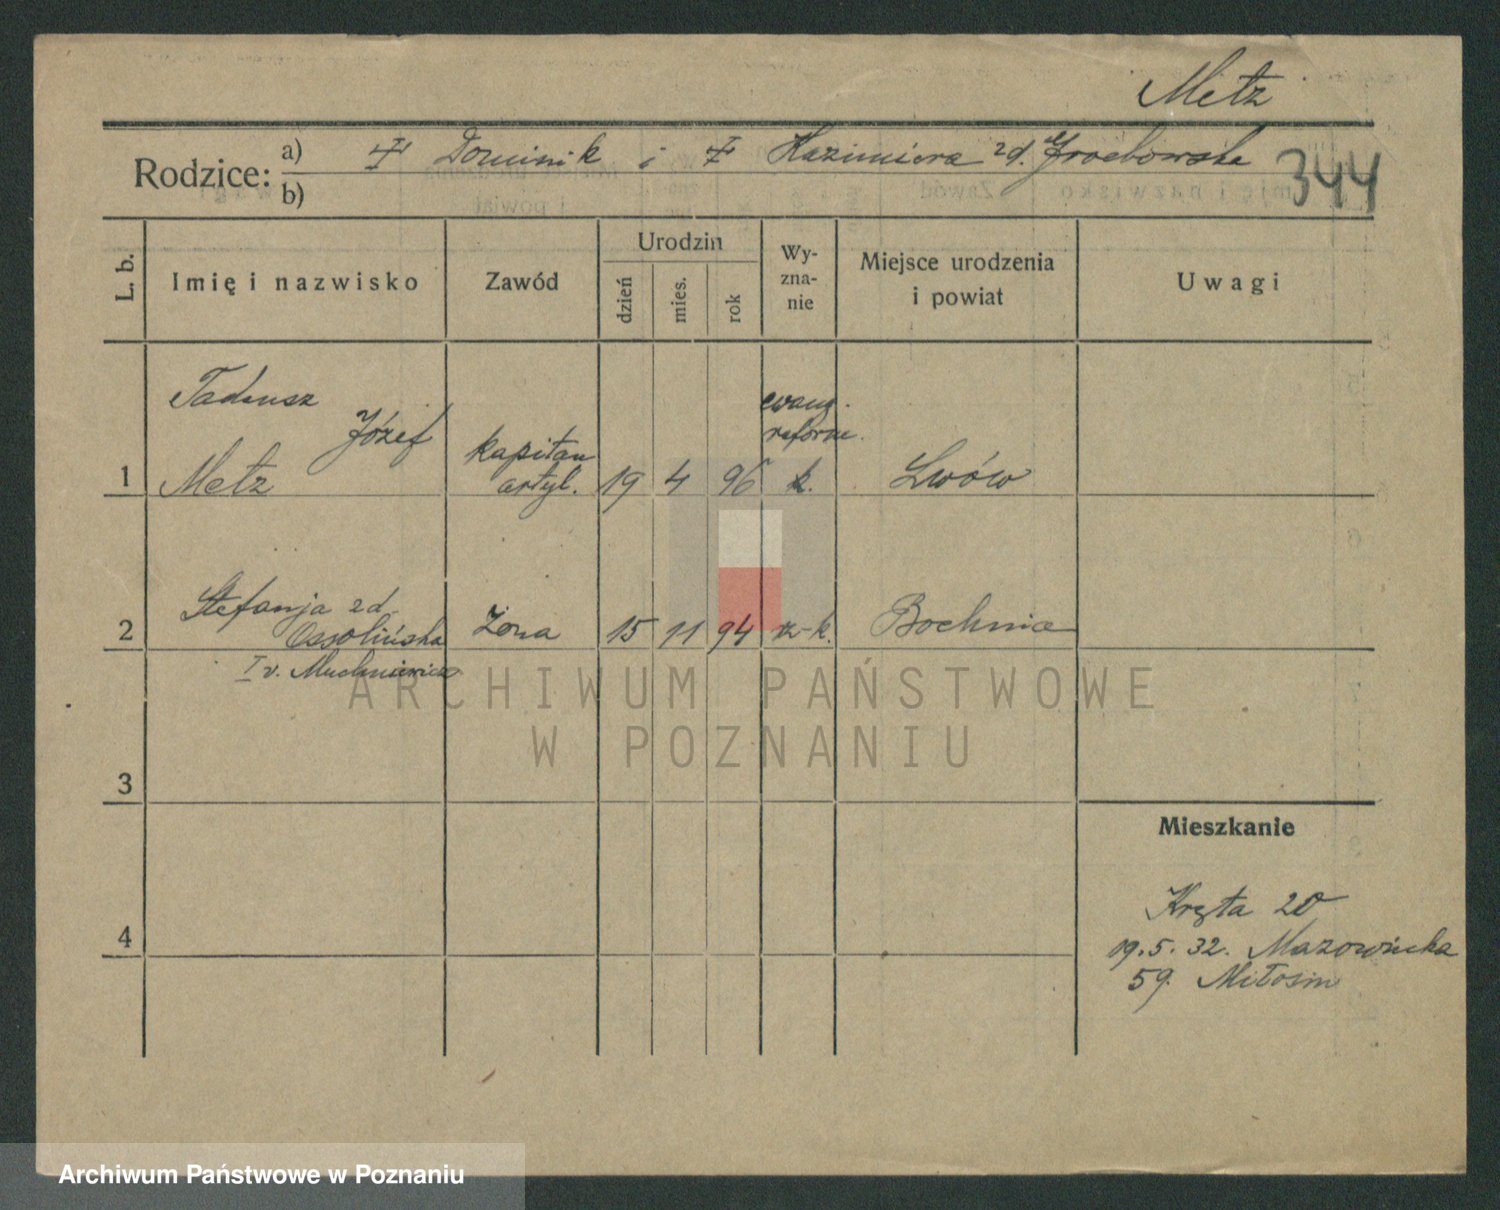 Metz
Rodzice: a) Dominik i Kazimiera zd. Grochowska
b)
344
L. b.
Imię i nazwisko
Zawód
Urodzin
dzień
mies.
rok
Wy-
zna-
nie
Miejsce urodzenia
i powiat
Uwagi
1
Tadeusz
Józef
Metz
kapitan
artyl.
19
4
96
ewang.
reform.
Lwów
2
Stefanja zd.
Ossolińska
I v.
żona
15
11
94
rz-k.
Bochnia
3
4
Mieszkanie
Krzta 20
19.5.32. Mazowiecka
59.
ARCHIWUM PAŃSTWOWE
W POZNANIU
Archiwum Państwowe w Poznaniu